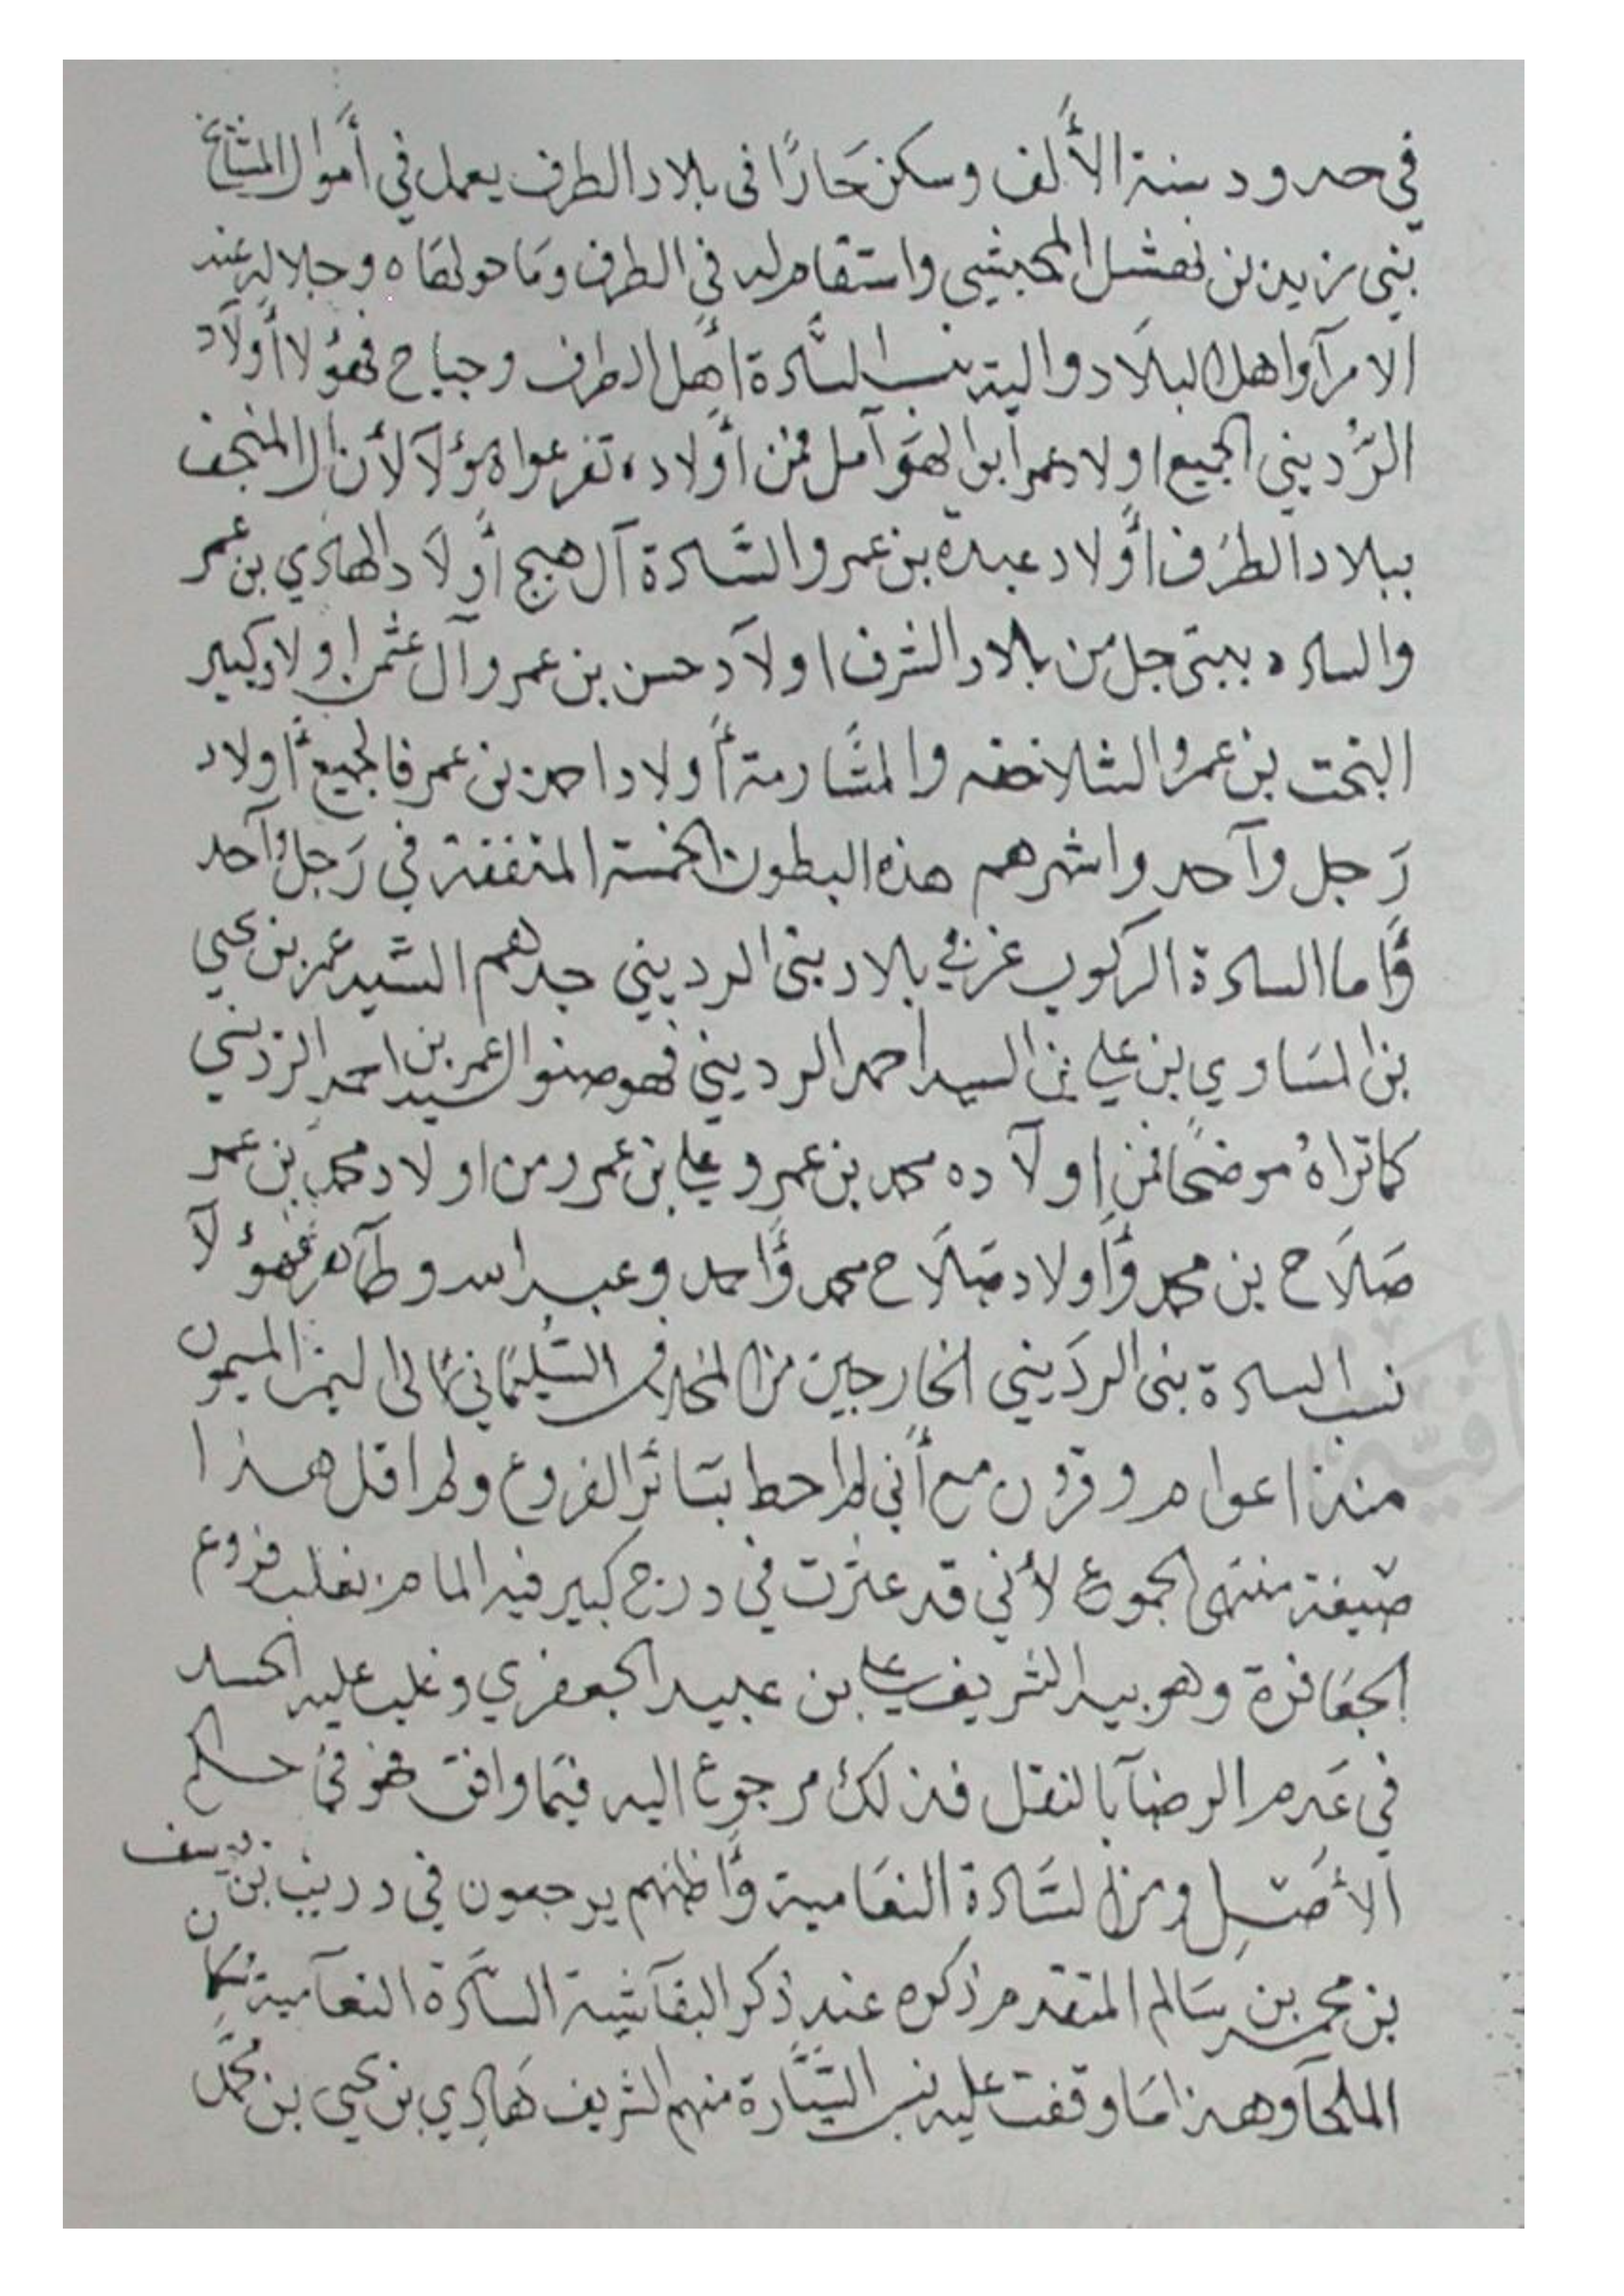 في حدود سنة الألف وسكن جارًا فى بلاد الطرف يعمل في أموال المشايخ
بني زيد بن نهشل المحبشي واستقام له في الطرف وما حولها ه وجلاله عند
الامرآ واهل البلاد واليه نسب السَّادة أهل الطرف وجياح فهؤلا أولاد
الرُّديني الجميع اولاد عمر أبو الهوآمل فمن أولاده تفرعوا هؤلآ لأن ال المنجف
ببلاد الطرف أولاد عبده بن عمر والسَّادة آل هيج أولاد الهادي بن عمر
والساده ببني جل من بلاد الشرف اولآد حسن بن عمر وآل عثمن اولاد كبير
البخت بن عمر والشلاخفه والمشارمة أولاد احمد بن عمر فالجميع أولاد
رَجل وآحد واشهرهم هذه البطون الخمسة المتفقة في رَجل وآحد
وأما السادة الركوب غربي بلاد بنى الرديني جدهم السَّيد عمر بن يحيى
بن المساوي بن علي بن السيد احمد الرديني فهو صنو العمر بن السيد احمد الرديني
كما تراهُ موضحًا فمن اولآده محمد بن عمر وعلي بن عمر ومن اولاد محمد بن عمر
صَلَاح بن محمد وأولاد صَلَاح محمد وأحمد وعبد الله وطآهر فهؤلآ
نسب السادة بنى الردَيني الخارجين من المخلاف السَّليماني الى اليمن الميمون
منذ اعوام وقرون مع أني لم احط بسَائر الفروع ولم اقل هذا
صيغة منتهى الجموع لأني قد عثرت في درج كبير فيه المام بغلب فروع
الجعَافرة وهو بيد الشريف علي بن عبيد الجعفري وغلب عليه الحسد
في عَدم الرضآ بالنقل فذلك مرجوع اليه فيمَا وافق فهو في حكم
الأصل ومن السَّادة النعَامية وأظنهم يرجعون في دريب بن يوسف
بن محمد بن سَالم المتقدم ذكره عند ذكر البقآشية السَّادة النعآمية سُكان
الملحآ وهذا مَا وقفت عليه نسب السَّادة منهم الشريف هَادي بن يحيى بن محمَّد